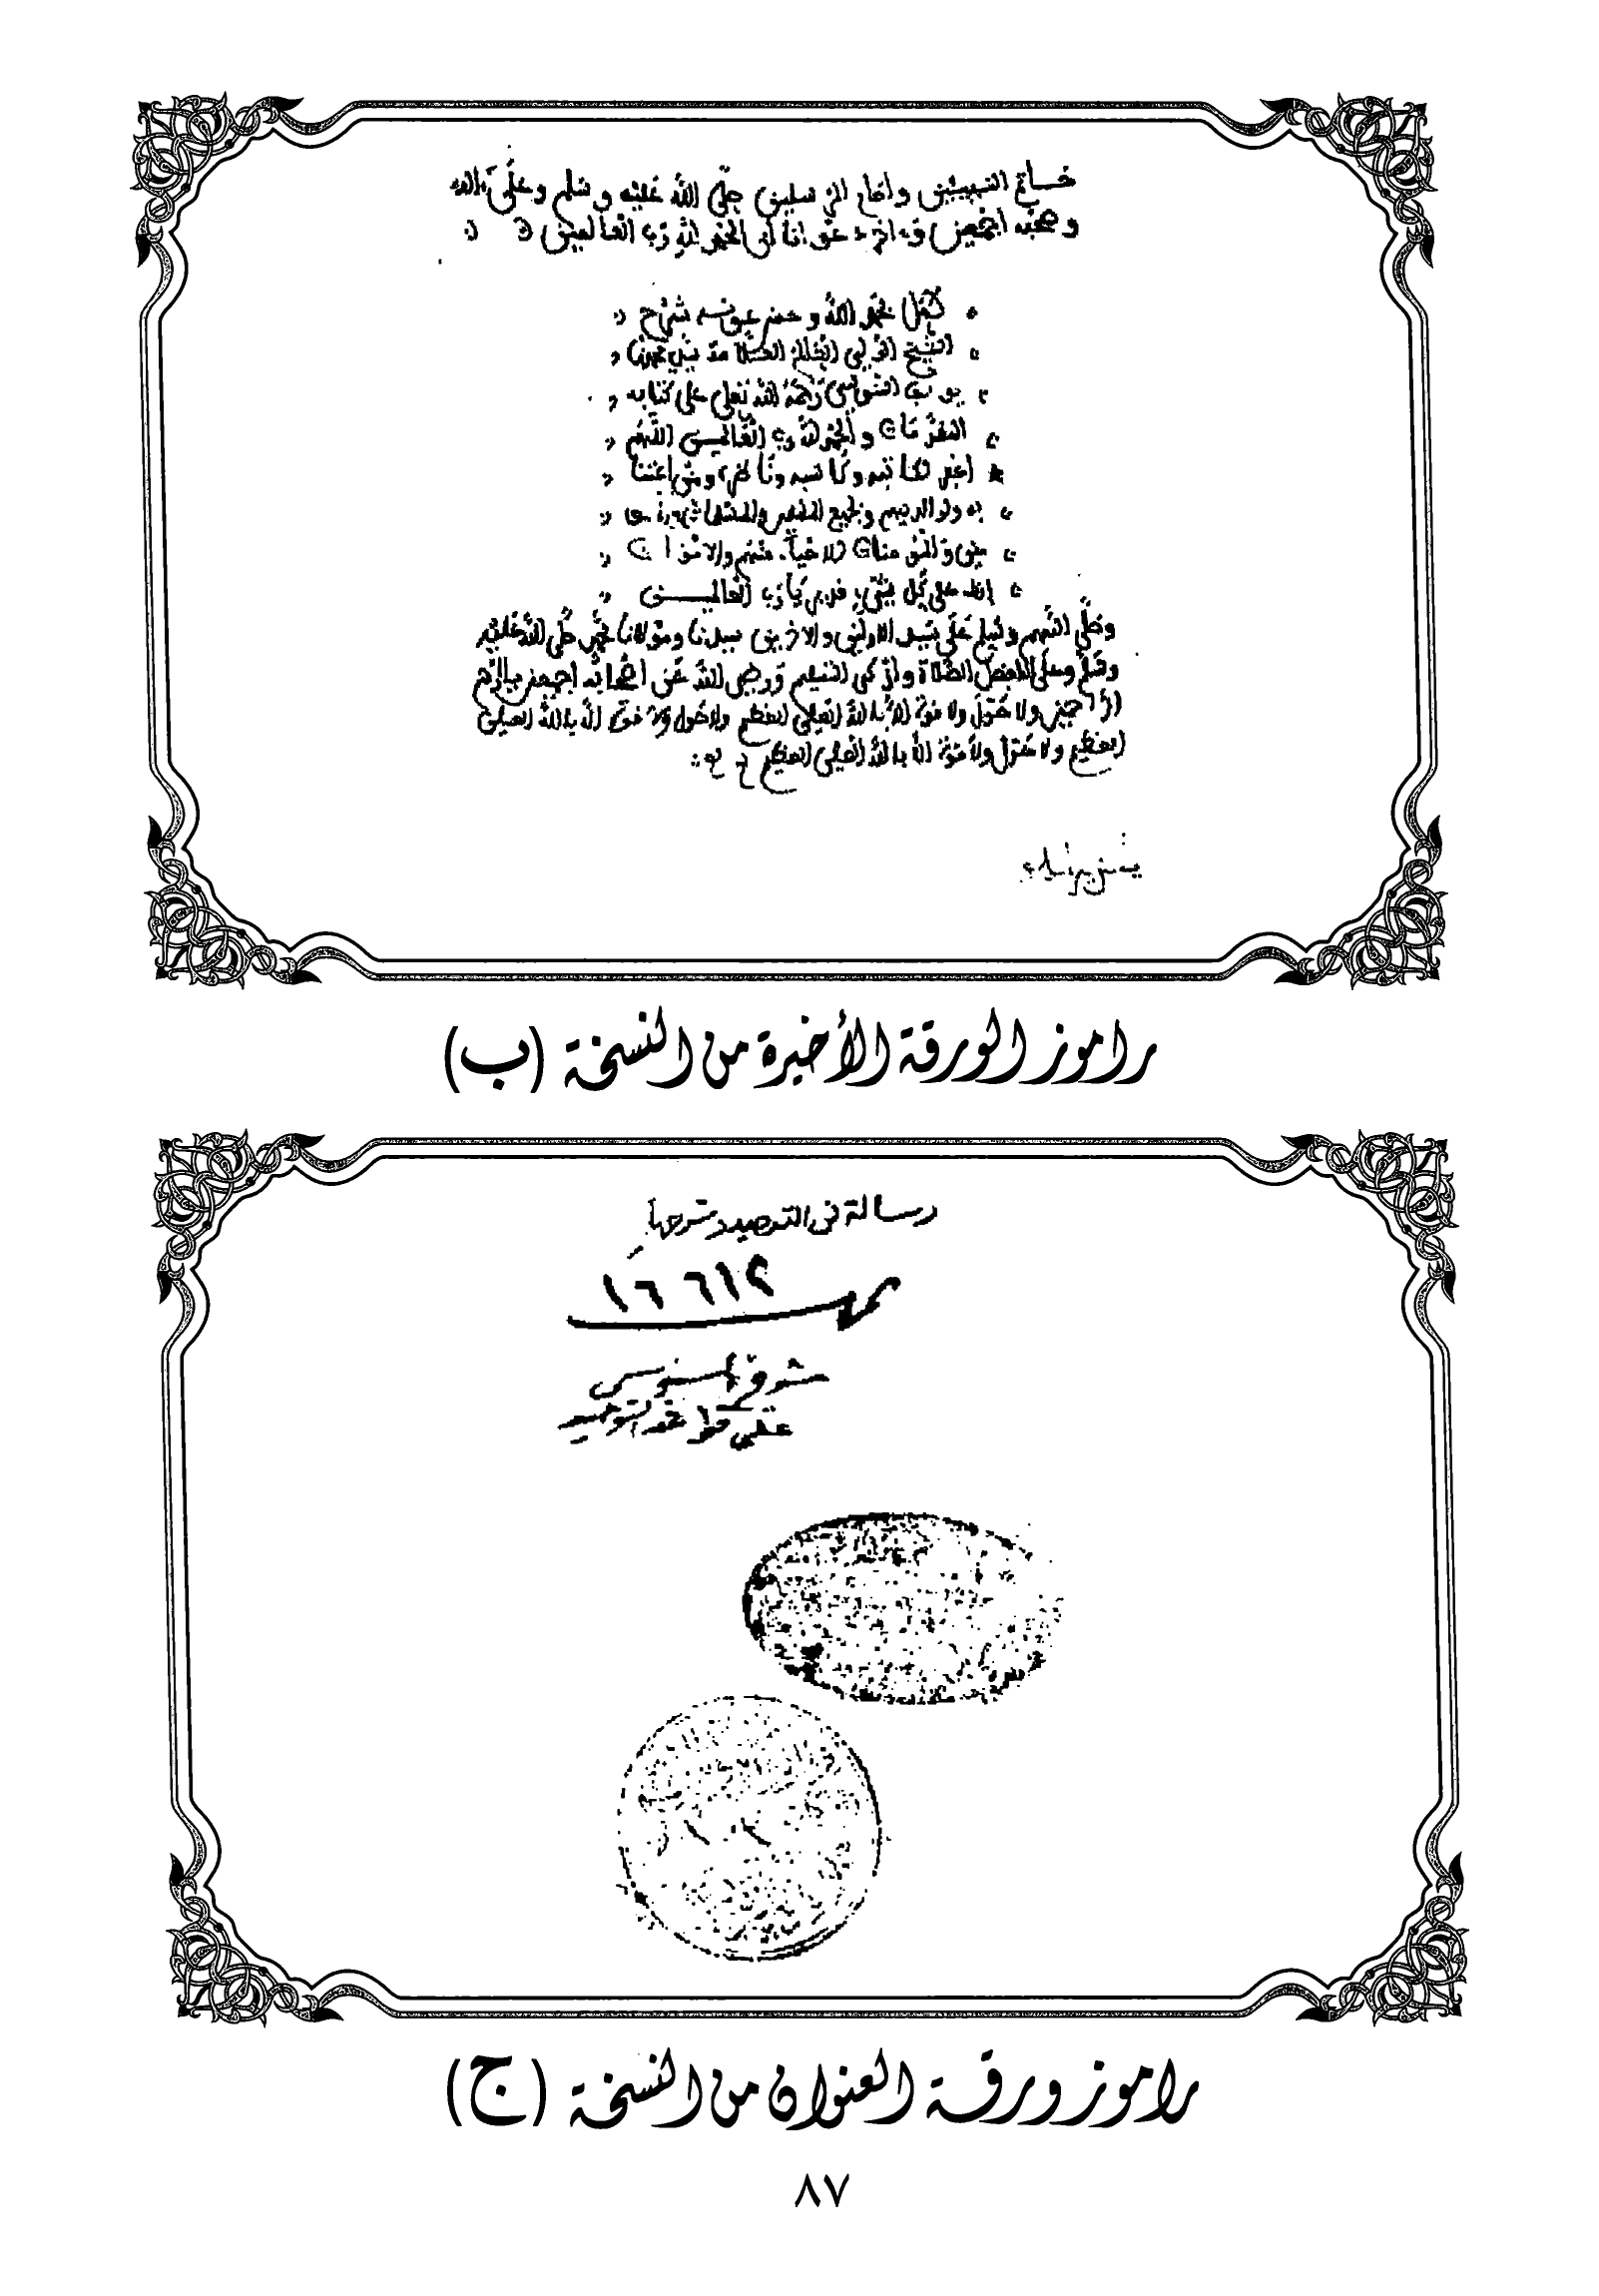 خاتم النبيين وامام المرسلين صلى الله عليه وسلم وعلى ءاله
وصحبه اجمعين وءاخر دعوانا أن الحمد لله رب العالمين
كمل بحمد الله وحسن عونه شرح
الشيخ الولي العلامة سيدي محمد بن
يوسف السنوسي رحمه الله تعالى على كتابه
المقدمات والحمد لله رب العالمين اللهم
اغفر لكاتبه وكاسبه وناظره ومن اعتنا
به ولوالديهم ولجميع المسلمين والمسلمات
والمؤمنات الاحياء منهم والاموات
إنك على كل شيء قدير يا رب العالمين
وصلى اللهم وسلم على سيد الاولين والاخرين سيدنا ومولانا محمد صلى الله عليه
وسلم وعلى اله افضل الصلاة وازكى التسليم ورضي الله عن اصحابه اجمعين يا ارحم
الراحمين ولا حول ولا قوة الا بالله العلي العظيم ولا حول ولا قوة الا بالله العلي
العظيم ولا حول ولا قوة الا بالله العلي العظيم
راموز الورقة الأخيرة من النسخة (ب)
رسالة في التوحيد وشرحها
١٦ ٦١٢
شرح السنوسي
على التوحيد
راموز ورقة العنوان من النسخة (ج)
٨٧